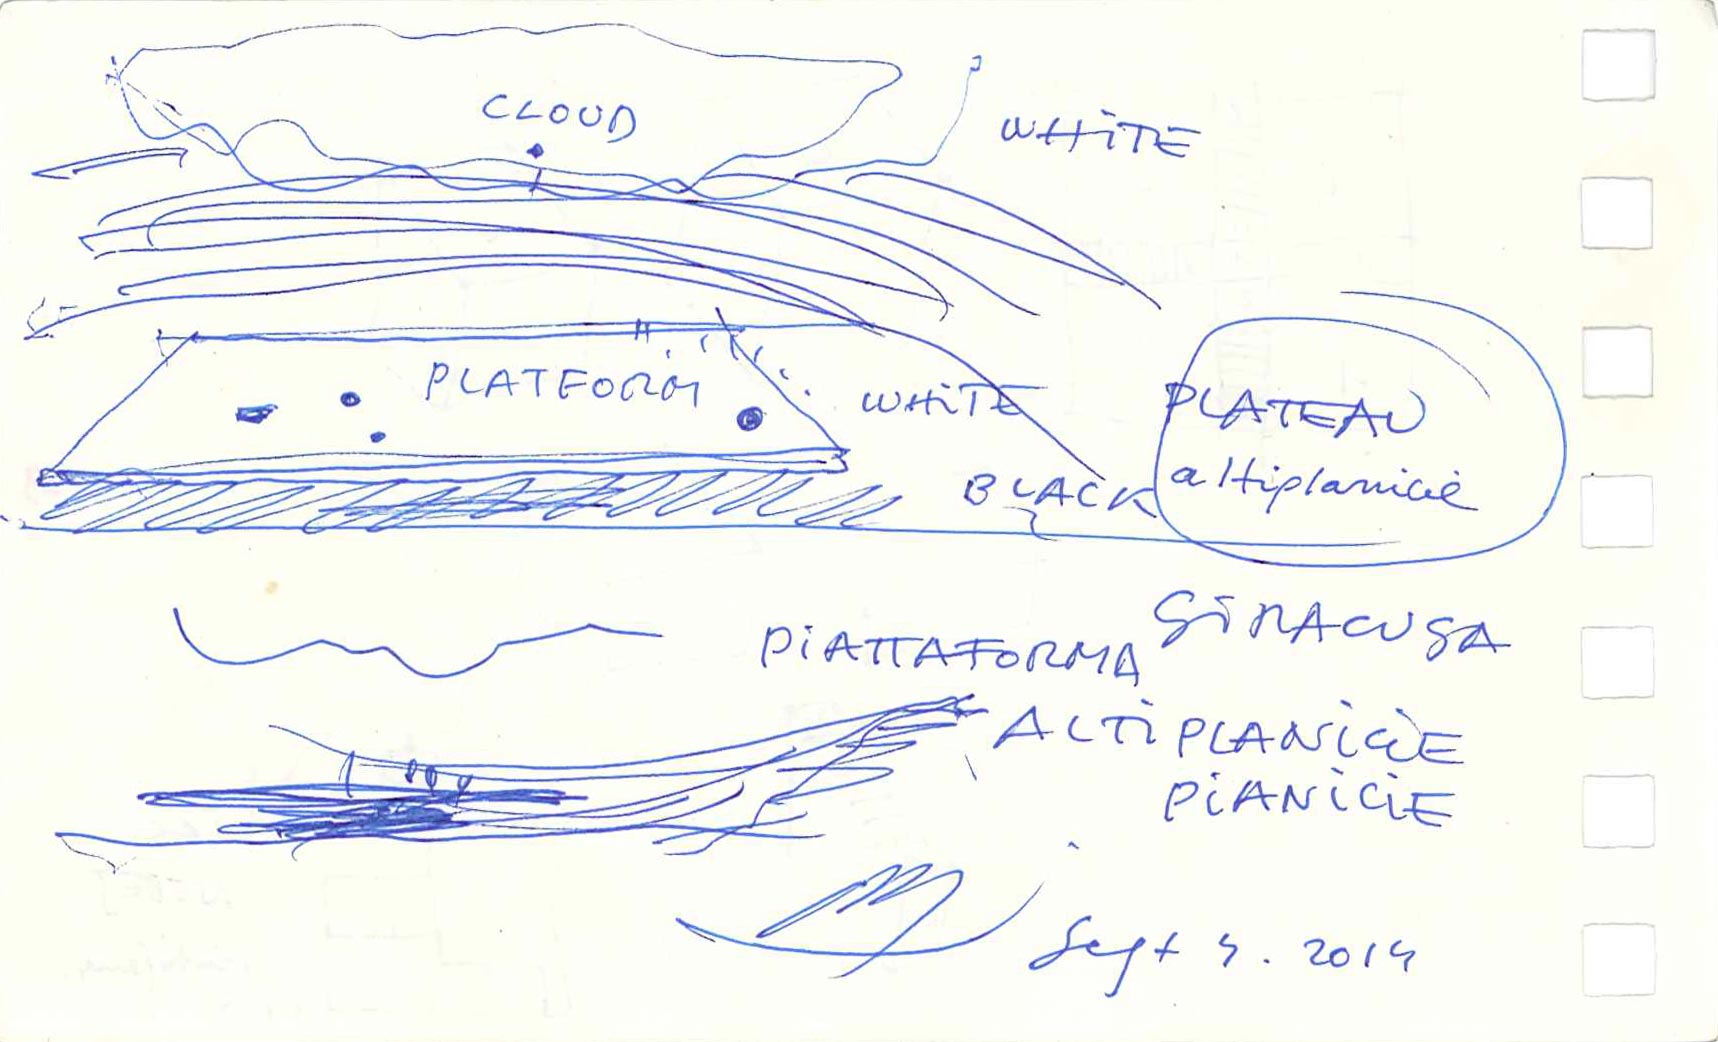 CLOUD
WHITE
PLATFORM
WHITE
PLATEAU
altiplanicie
BLACK
SIRACUSA
PIATTAFORMA
ALTIPLANICIE
PIANICIE
Sept 4. 2014